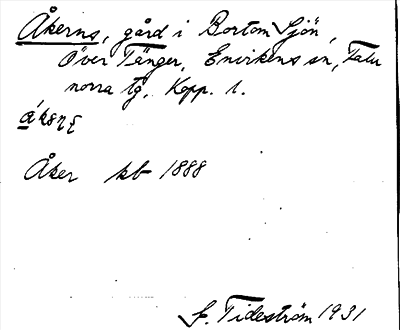 Åkerns, gård i Bortom Sjön,
Över Tänger, Envikens sn, Falu
norra tg, Kopp. l.
Åker kb 1888
J. Tideström 1931